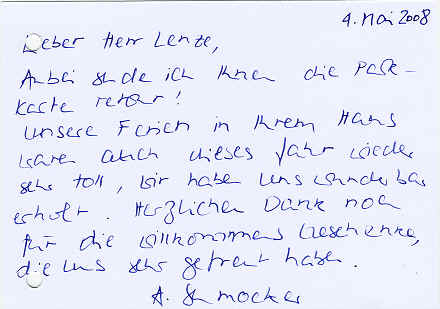 4. Mai 2008
Lieber Herr Lenze,
Anbei sende ich Ihnen die Park-
karte retour!
Unsere Ferien in Ihrem Haus
waren auch dieses Jahr wieder
sehr toll, wir haben uns wunderbar
erholt. Herzlichen Dank noch
für die Willkommens Geschenke,
die uns sehr gefreut haben.
A. Schmocker